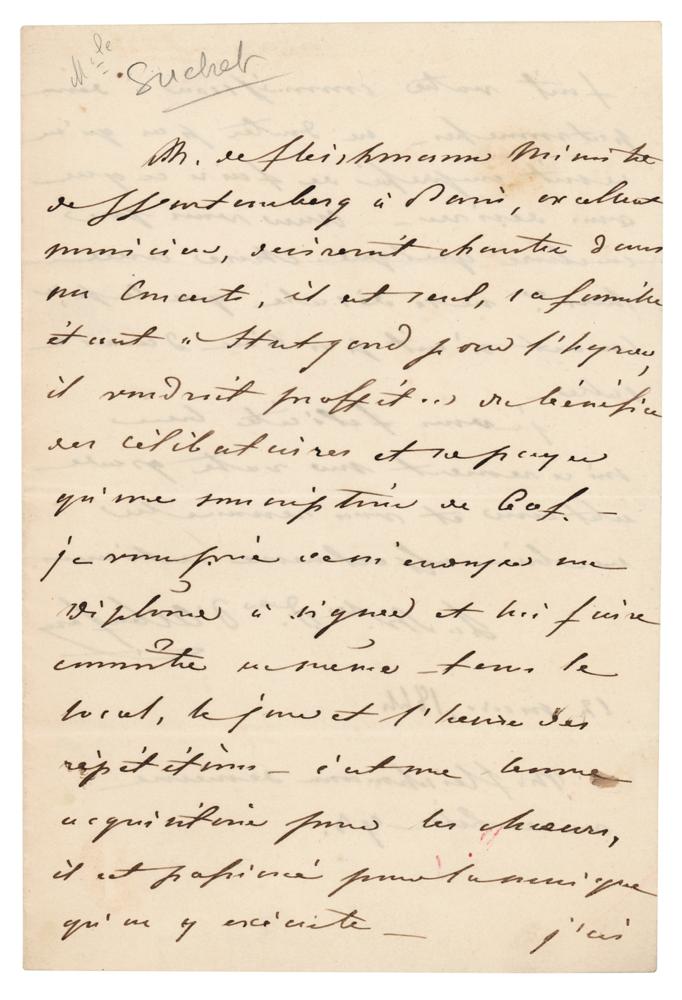 Mlle Suchet
M. de fleischmann Ministre
de Wurtemberg à Paris, excellent
musicien, desirerait chanter dans
nos Concerts, il est seul, sa famille
étant à Stutgard pour l'hyver,
il voudrait proffiter du bénéfice
des célibataires et ne payer
qu'une souscription de 60f. —
je vous prie de m'envoyer un
diplôme à signer et lui faire
connaître en même tems le
local, le jour et l'heure des
répétitions — c'est une bonne
acquisition pour les chœurs,
il est passioné pour la musique
qu'on y exécute — j'ai